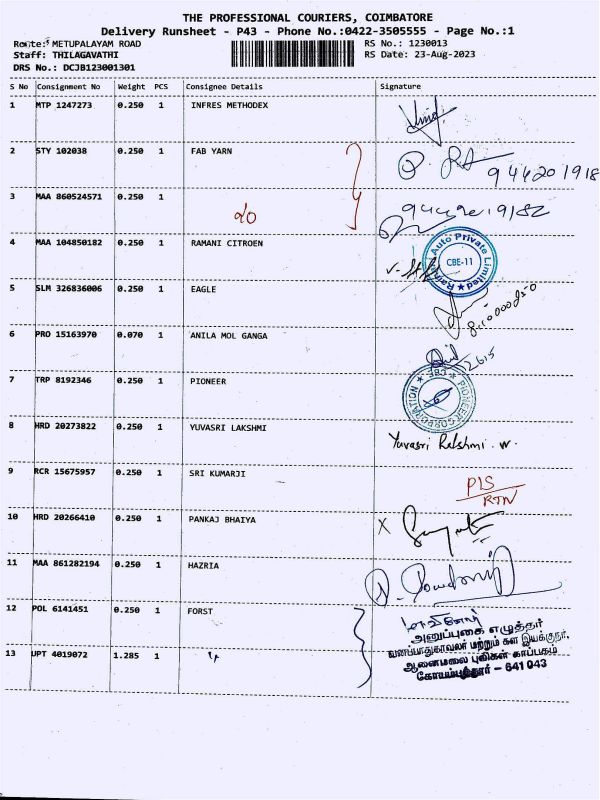 THE PROFESSIONAL COURIERS, COIMBATORE
Delivery Runsheet - P43 - Phone No.:0422-3505555 - Page No.:1
Route: METUPALAYAM ROAD RS No.: 1230013
Staff: THILAGAVATHI RS Date: 23-Aug-2023
DRS No.: DCJB123001301
S No Consignment No Weight PCS Consignee Details Signature
1 MTP 1247273 0.250 1 INFRES METHODEX
2 STY 102038 0.250 1 FAB YARN
944201918
3 MAA 860524571 0.250 1
4 MAA 104850182 0.250 1 RAMANI CITROEN
Auto Private Limited CBE-11
5 SLM 326836006 0.250 1 EAGLE
6 PRO 15163970 0.070 1 ANILA MOL GANGA
7 TRP 8192346 0.250 1 PIONEER
PIONEER CORPORATION CBE
8 HRD 20273822 0.250 1 YUVASRI LAKSHMI
Yuvasri Lakshmi. W.
9 RCR 15675957 0.250 1 SRI KUMARJI
PIS
RTN
10 HRD 20266410 0.250 1 PANKAJ BHAIYA
X
11 MAA 861282194 0.250 1 HAZRIA
12 POL 6141451 0.250 1 FORST
அனுப்புகை எழுத்தர்
வனப்பாதுகாவலர் மற்றும் கள இயக்குநர்,
ஆனைமலை புலிகள் காப்பகம்
கோயம்புத்தூர் - 641 043
13 UPT 4019072 1.285 1 "